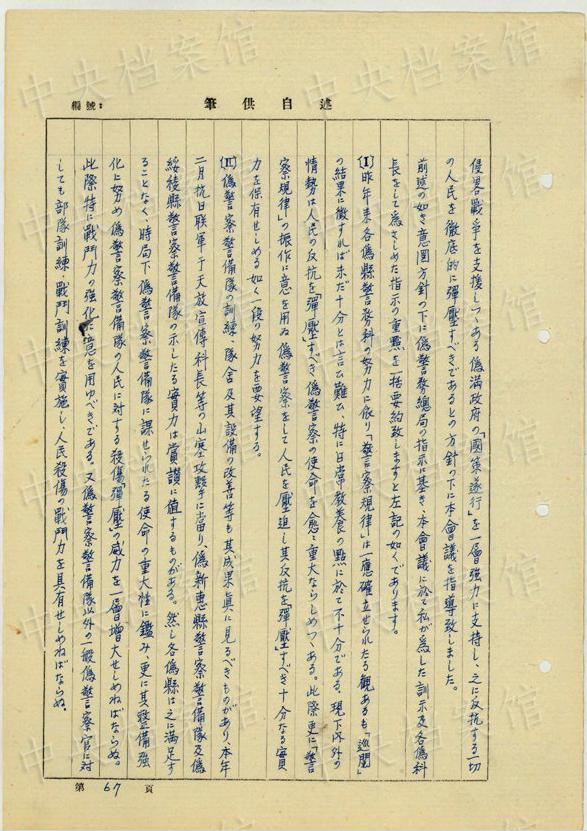 編號：
述自供筆
侵畧戰爭を支援しつゝある偽満政府の「國策遂行」を一層強力に支持し、之に反抗する一切
の人民を徹底的に彈壓すべきであるとの方針の下に本會議を指導致しました。
前述の如き意圖方針の下に偽警務總局の指示に基き、本會議に於て私が為した訓示及各偽科
長をして為さしめた指示の重點を一括要約致しますと左記の如くであります。
(I)昨年来各偽縣警務科の努力に依り「警察規律」は一應確立せられたる觀あるも「巡閲」
の結果に徴すれば未だ十分とは言ひ難く、特に日常教養の點に於て不十分である、現下内外の
情勢は人民の反抗を「彈壓」すべき偽警察の使命を愈々重大ならしめつゝある。此際更に「警
察規律」の振作に意を用ゐ偽警察をして人民を壓迫し其反抗を「彈壓」すべき十分なる實
力を保有せしめる如く一段の努力を要望する。
(II)偽警察警備隊の訓練、隊舍及其設備の改善等も其成果真に見るべきものがあり本年
二月抗日联軍于天放宣傳科長等の山寨攻擊に當り、偽新惠縣警察警備隊及偽
綏稜縣警察警備隊の示したる實力は賞讃に値するものがある。然し各偽縣は之に滿足す
ることなく、時局下偽警察警備隊に課せられたる使命の重大性に鑑み、更に其整備強
化に努め偽警察警備隊の人民に対する殺傷彈壓の威力を一層增大せしめねばならぬ。
此際特に戰鬥力の強化に意を用ゆべきである。又偽警察警備隊以外の一般偽警察官に対
しても部隊訓練、戰鬥訓練を實施し、人民殺傷の戰鬥力を具有せしめねばならぬ。
第 67 頁
中央档案馆